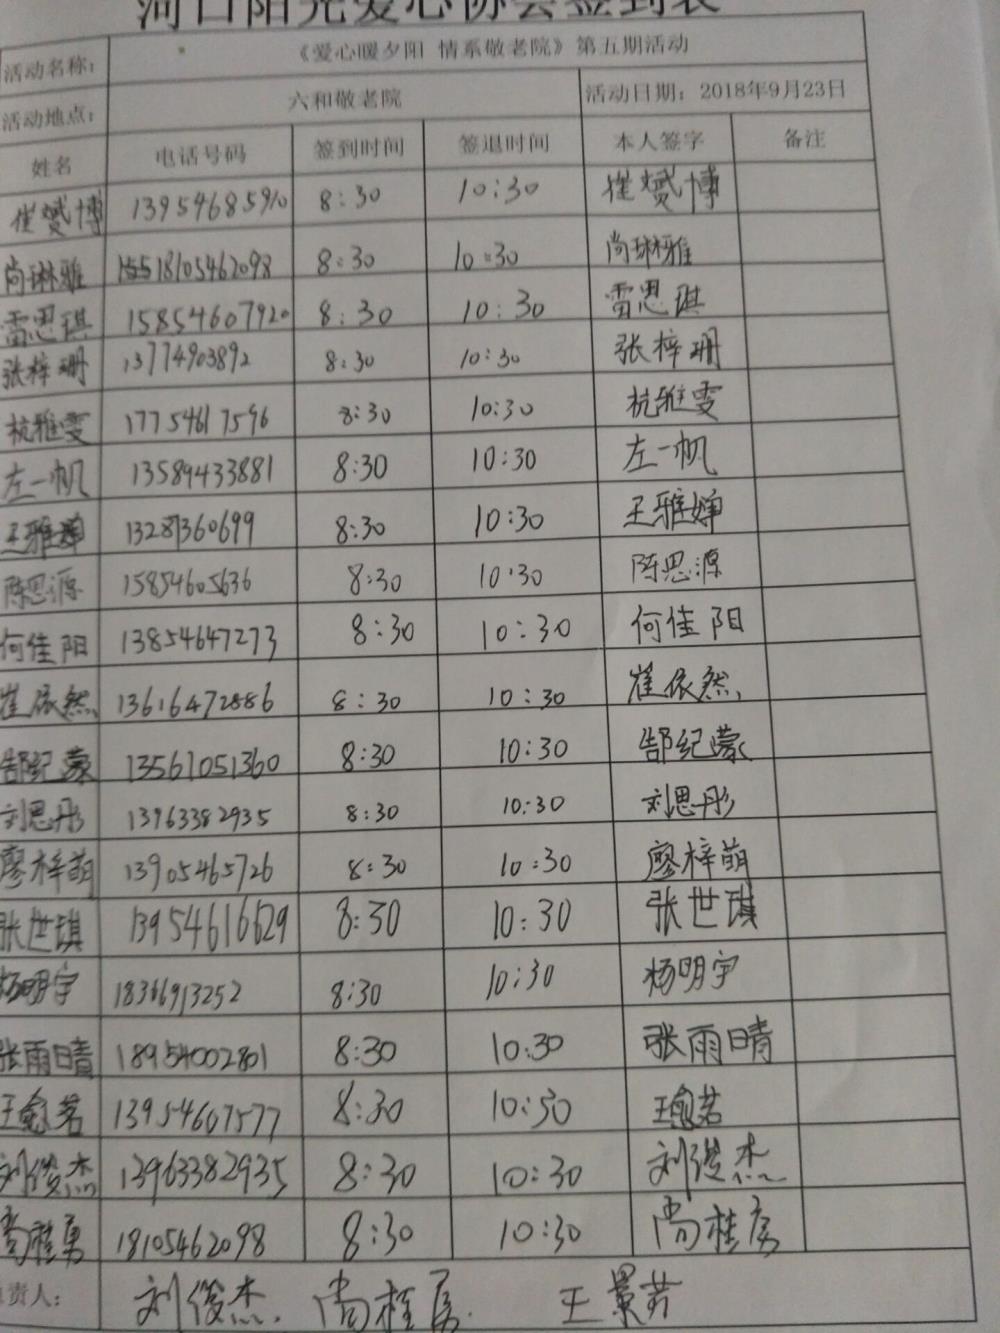 河口阳光爱心协会签到表
活动名称： 《爱心暖夕阳 情系敬老院》第五期活动
活动地点： 六和敬老院 活动日期：2018年9月23日
姓名 电话号码 签到时间 签退时间 本人签字 备注
崔赟博 13954685910 8:30 10:30 崔赟博
尚琳雅 18105462098 8:30 10:30 尚琳雅
雷思琪 15854607920 8:30 10:30 雷思琪
张梓珊 13774903892 8:30 10:30 张梓珊
杭雅雯 17754617596 8:30 10:30 杭雅雯
左一帆 13589433881 8:30 10:30 左一帆
王雅婵 13287360699 8:30 10:30 王雅婵
陈思源 15854605636 8:30 10:30 陈思源
何佳阳 13854647273 8:30 10:30 何佳阳
崔依然 13616472886 8:30 10:30 崔依然
郜纪蒙 13561051360 8:30 10:30 郜纪蒙
刘思彤 13963382935 8:30 10:30 刘思彤
廖梓萌 13905465726 8:30 10:30 廖梓萌
张世琪 13954616629 8:30 10:30 张世琪
杨明宇 18366913252 8:30 10:30 杨明宇
张雨晴 18954002801 8:30 10:30 张雨晴
王愈茗 13954607577 8:30 10:30 王愈茗
刘俊杰 13963382935 8:30 10:30 刘俊杰
尚桂勇 18105462098 8:30 10:30 尚桂勇
责人： 刘俊杰 尚桂勇 王景芳